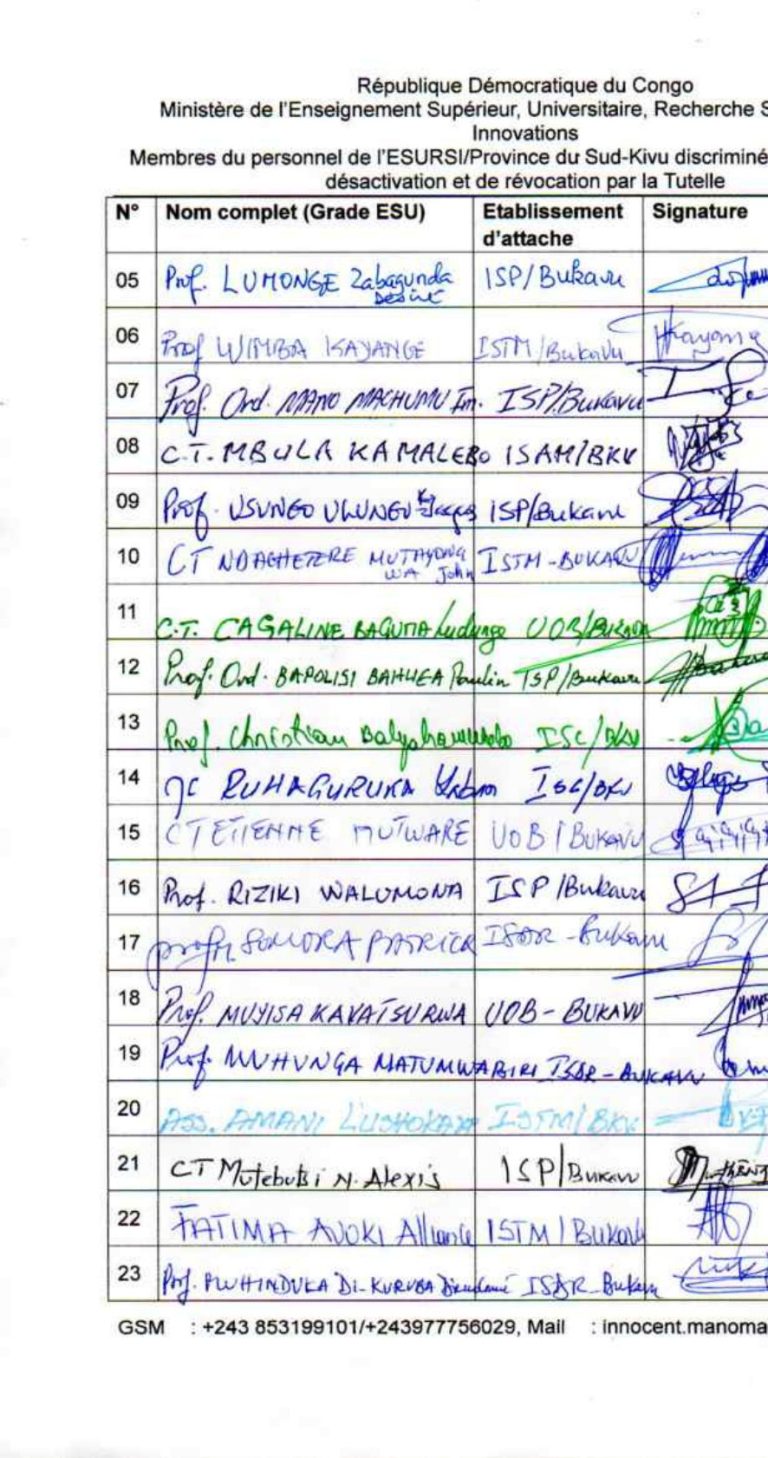 République Démocratique du Congo
Ministère de l'Enseignement Supérieur, Universitaire, Recherche S
Innovations
Membres du personnel de l'ESURSI/Province du Sud-Kivu discriminé
désactivation et de révocation par la Tutelle
N° Nom complet (Grade ESU) Etablissement d'attache Signature
05 Prof. LUMONGE Zabagunda Désiré ISP/Bukavu
06 Prof WIMBA KAYANGE ISTM/Bukavu
07 Prof. Ord. MANO MACHUMU Im. ISP/Bukavu
08 C.T. MBULA KAMALEBO ISAM/BKV
09 Prof. USUNGO ULUNGU ISP/Bukavu
10 CT WA John ISTM-BUKAVU
11 C.T. CAGALINE BAGUMA UOB/
12 Prof. Ord. BAPOLISI BAHUGA Paulin ISP/Bukavu
13 Prof. Christian ISC/BKV
14 RUHAGURUKA ISC/BKV
15 CT ETIENNE MUTWARE UOB/BUKAVU
16 Prof. RIZIKI WALUMONA ISP/Bukavu
17 PATRICE ISDR-Bukavu
18 Prof. MUYISA KAVATSURWA UOB-BUKAVU
19 Prof. MUHUNGA MATUMWABIRI ISDR-BUKAVU
20 ASS. AMANI ISTM/BKV
21 CT Mutebutsi N. Alexis ISP/BUKAVU
22 FATIMA AVOKI Alliance ISTM/BUKAVU
23 Prof. DI-KURUBA Dieudonné ISDR-Bukavu
GSM : +243 853199101/+243977756029, Mail : innocent.manoma